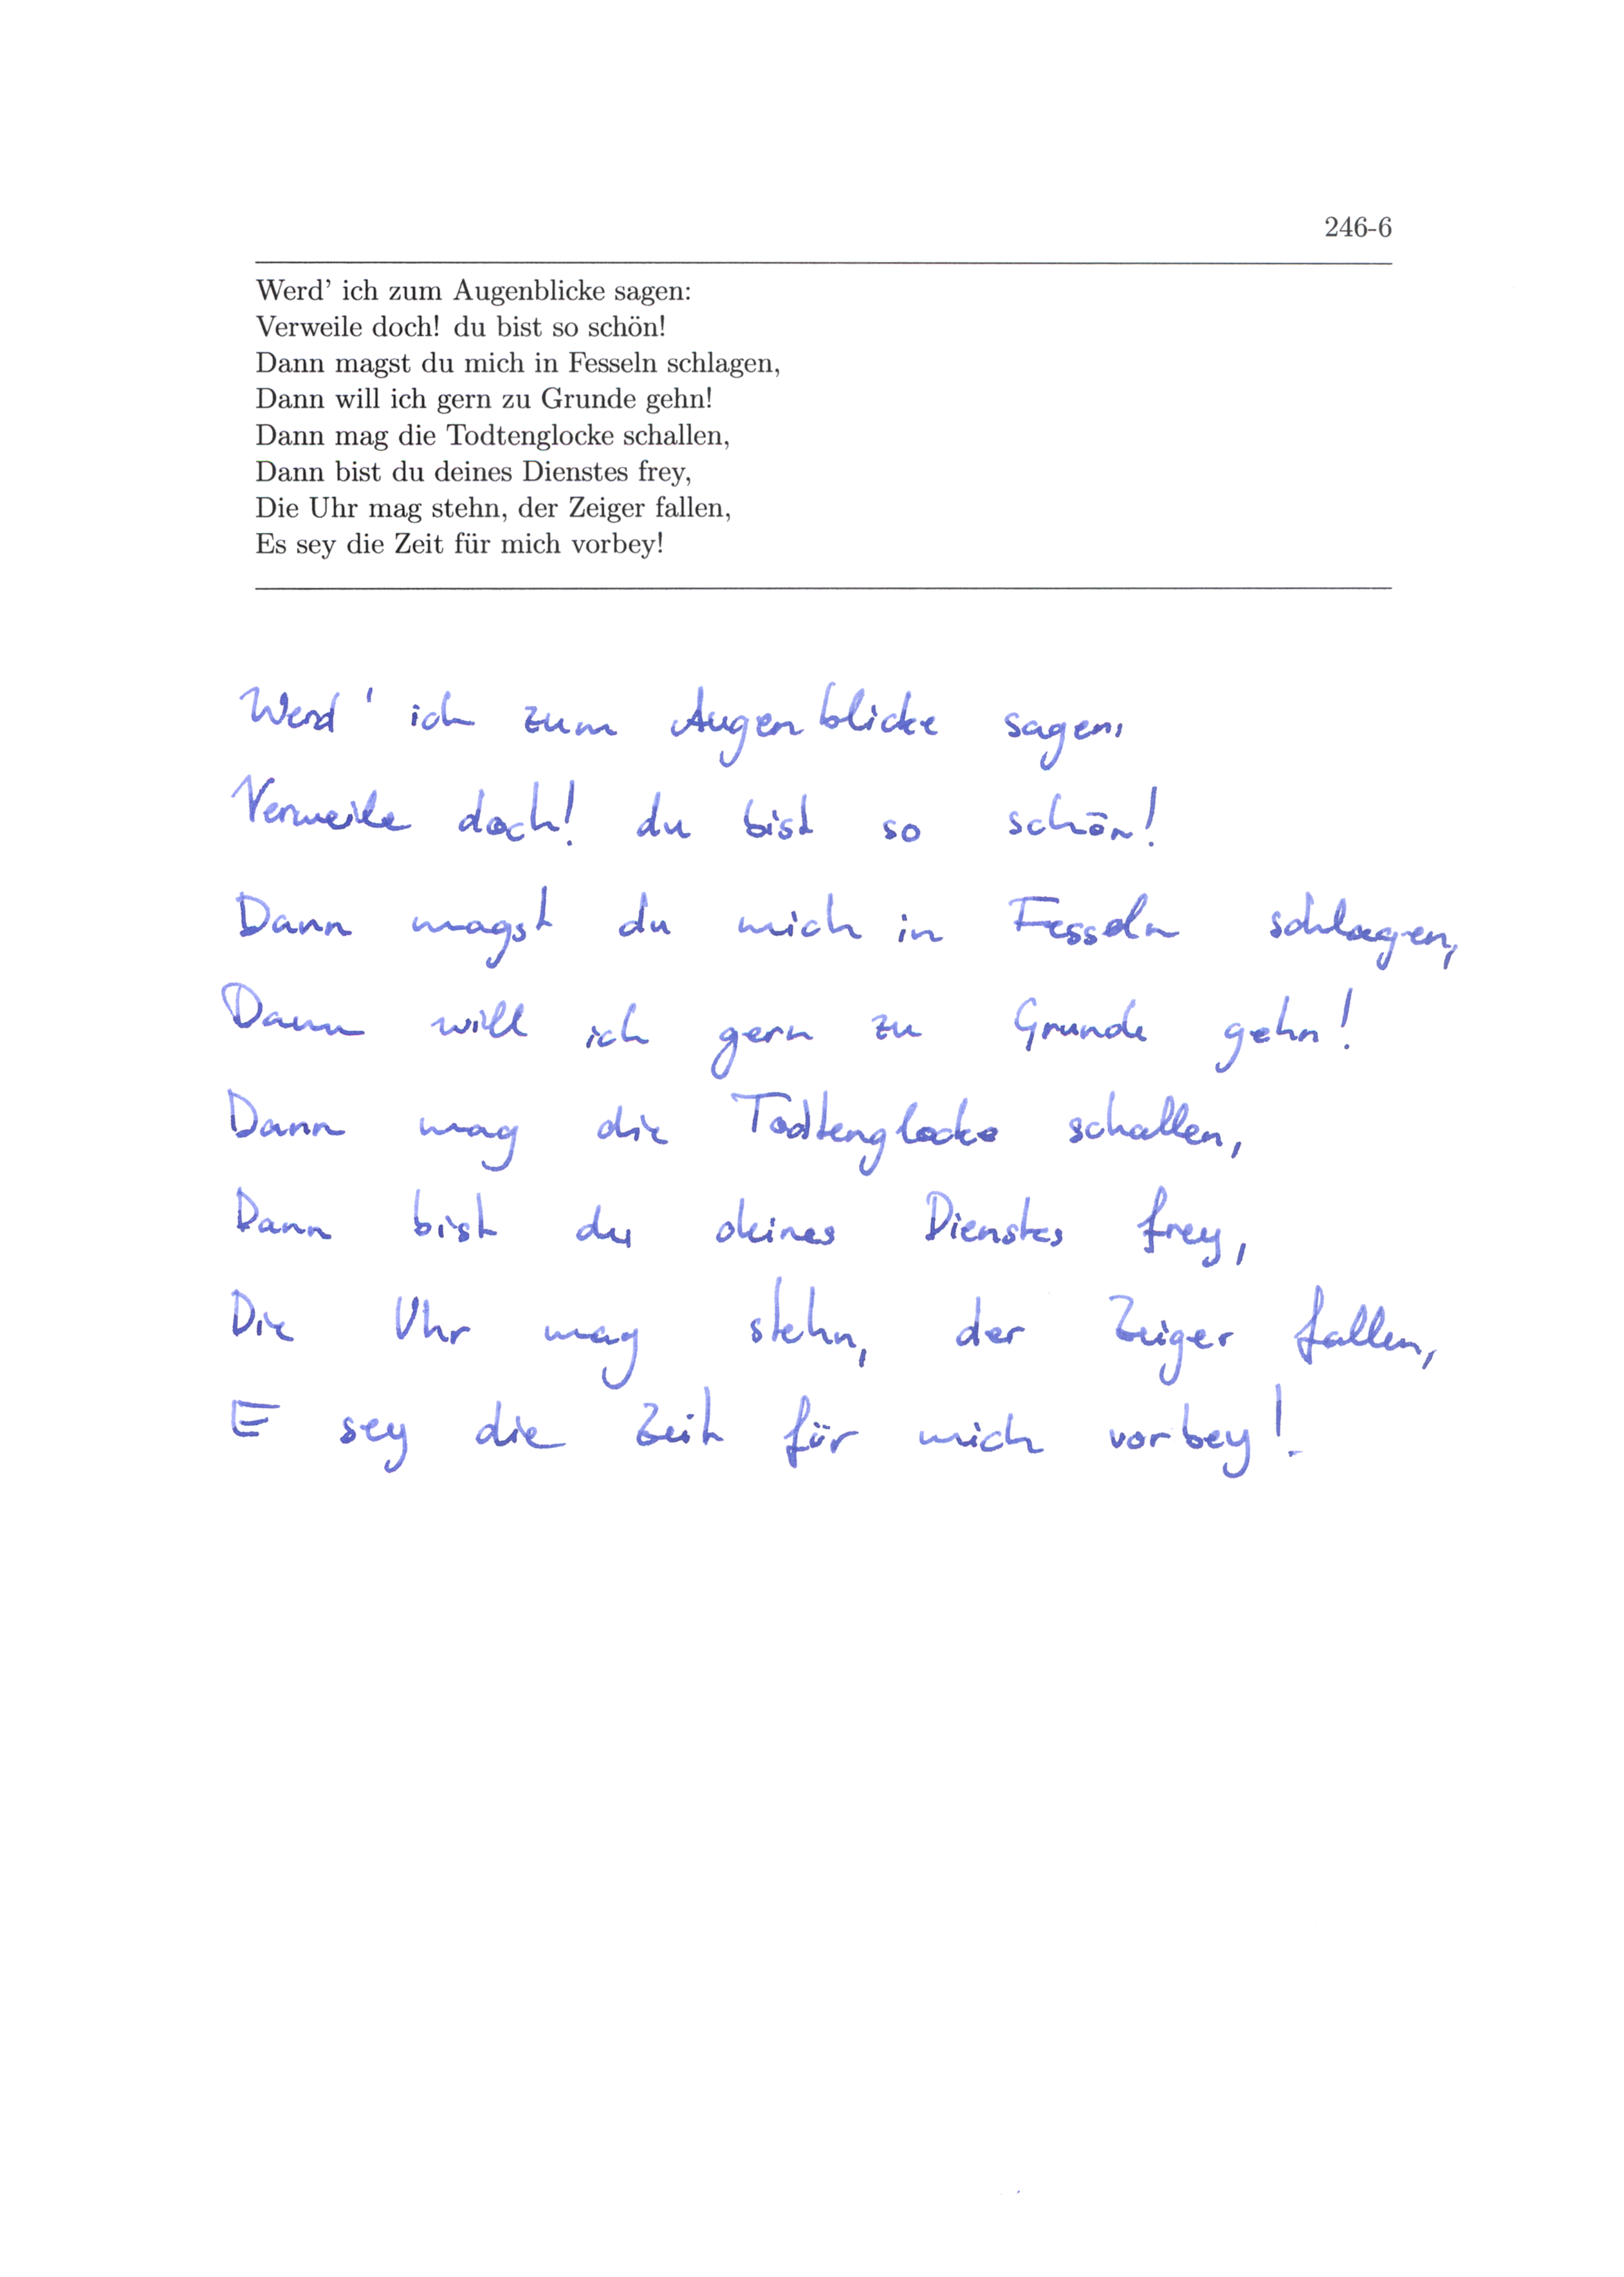 246-6
Werd' ich zum Augenblicke sagen:
Verweile doch! du bist so schön!
Dann magst du mich in Fesseln schlagen,
Dann will ich gern zu Grunde gehn!
Dann mag die Todtenglocke schallen,
Dann bist du deines Dienstes frey,
Die Uhr mag stehn, der Zeiger fallen,
Es sey die Zeit für mich vorbey!
Werd' ich zum Augenblicke sagen,
Verweile doch! du bist so schön!
Dann magst du mich in Fesseln schlagen,
Dann will ich gern zu Grunde gehn!
Dann mag die Todtenglocke schallen,
Dann bist du deines Dienstes frey,
Die Uhr mag stehn, der Zeiger fallen,
E sey die Zeit für mich vorbey!